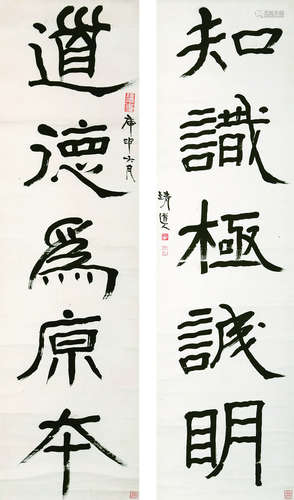 知識極誠明
道人
道德爲原本
庚申六月